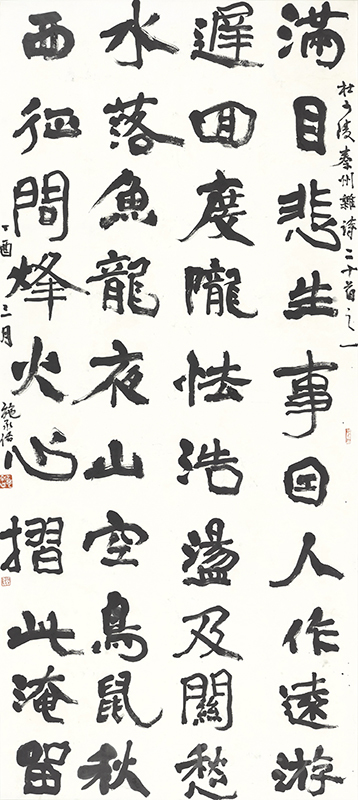 杜少陵秦州雜詩二十首之一
滿目悲生事因人作遠游
遲回度隴怯浩盪及關愁
水落魚龍夜山空鳥鼠秋
西征問烽火心摺此淹留
丁酉三月 施